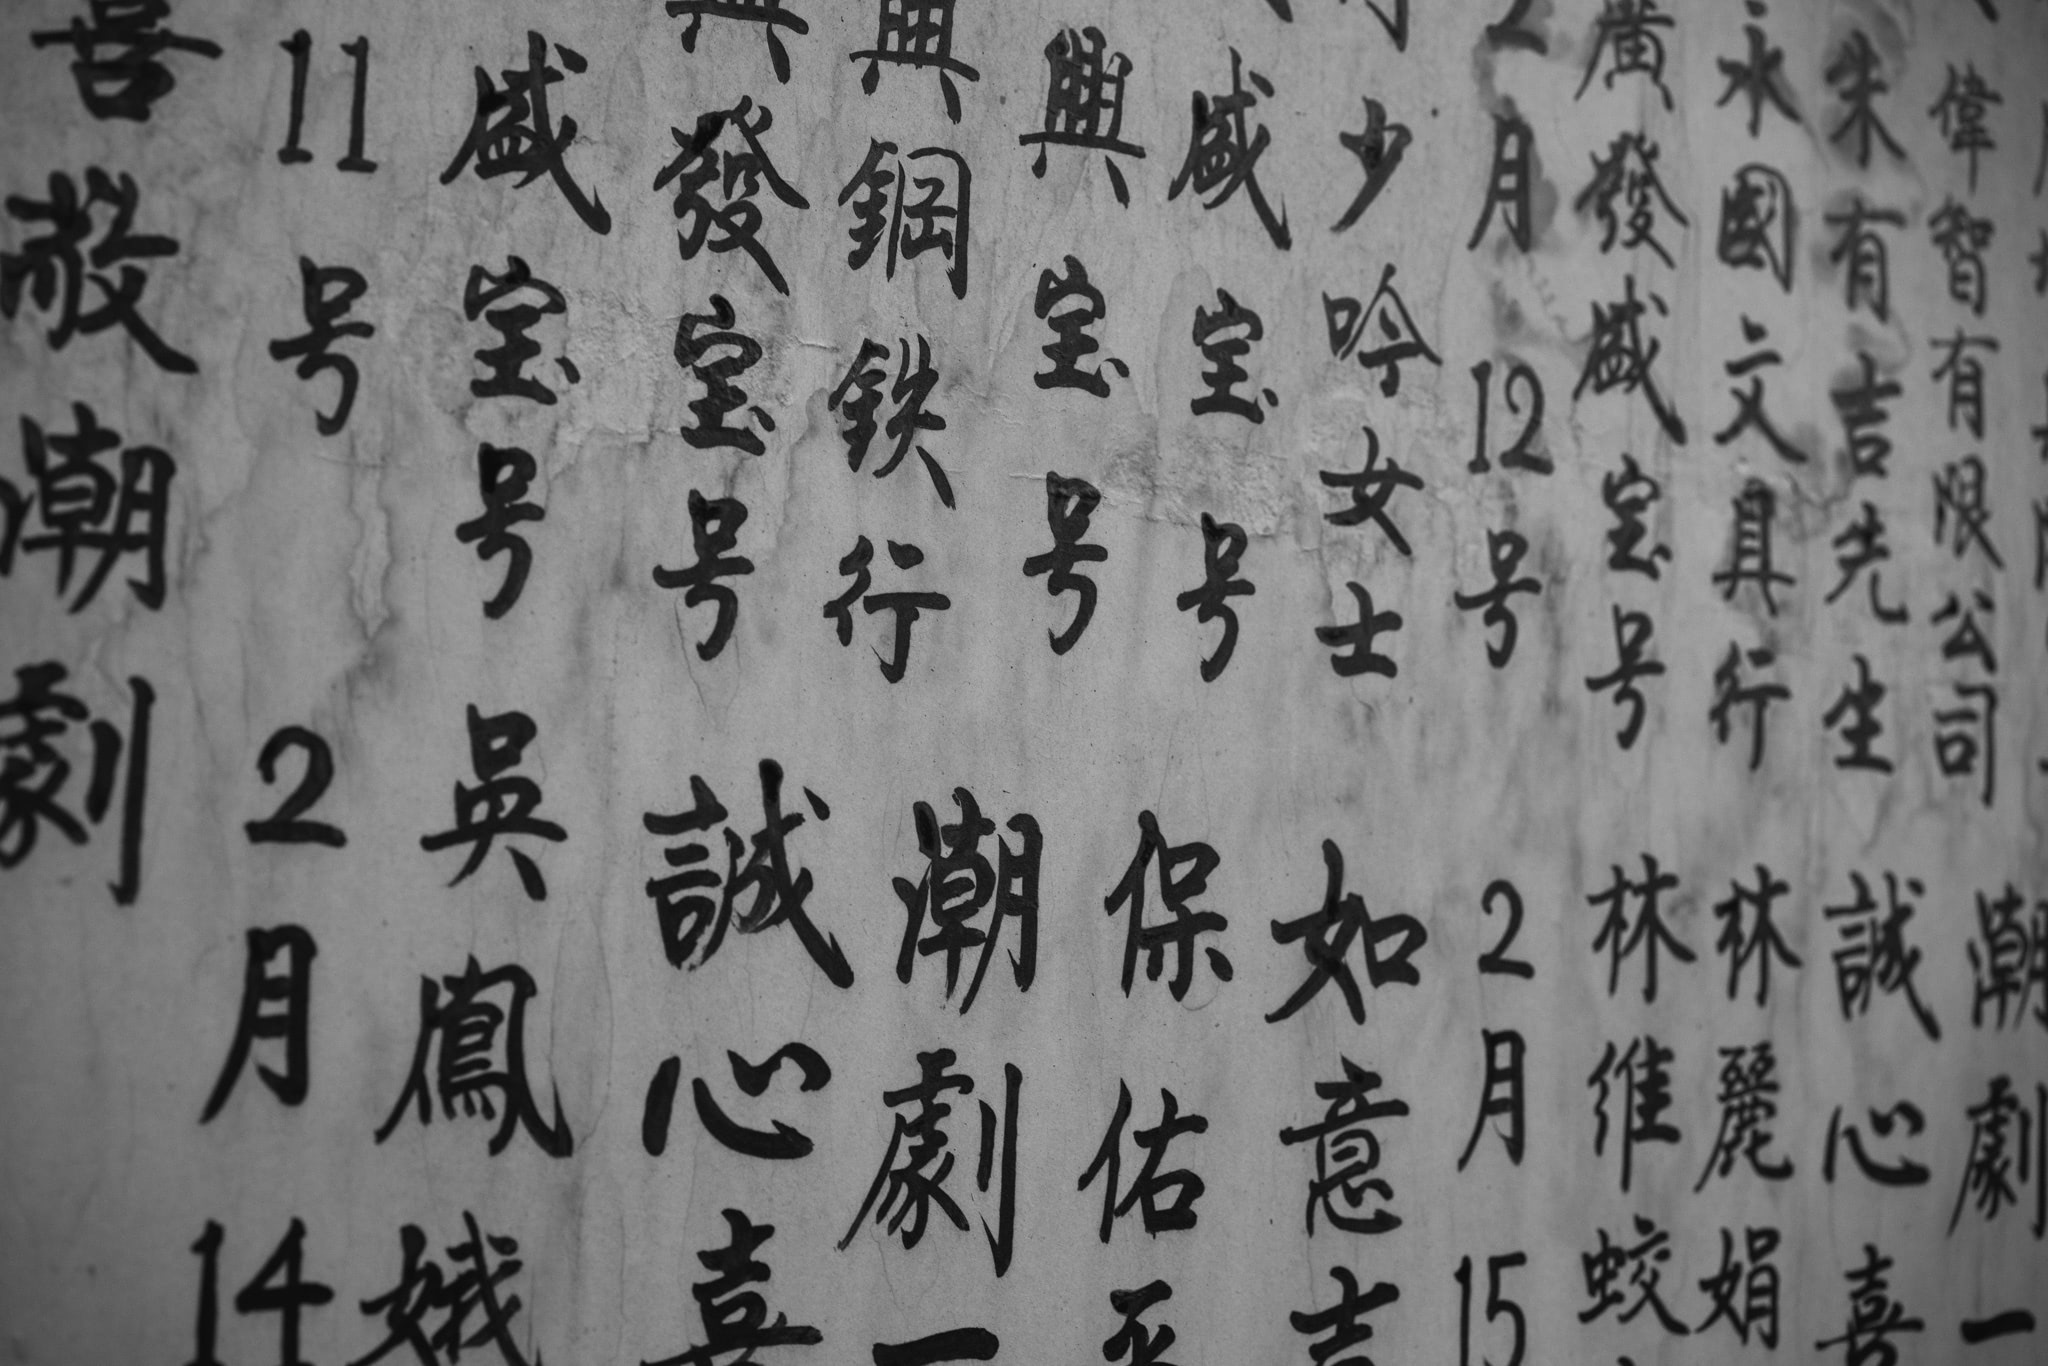 偉智有限公司 潮劇一
朱有吉先生 誠心喜
永國文具行 林麗娟
廣發盛宝号 林維蛟
2月12号 2月15
少吟女士 如意吉
盛宝号 保佑平
興宝号
興鋼鉄行 潮劇一
興發宝号 誠心喜
盛宝号 吳鳳娥
11号 2月14
喜敬潮劇